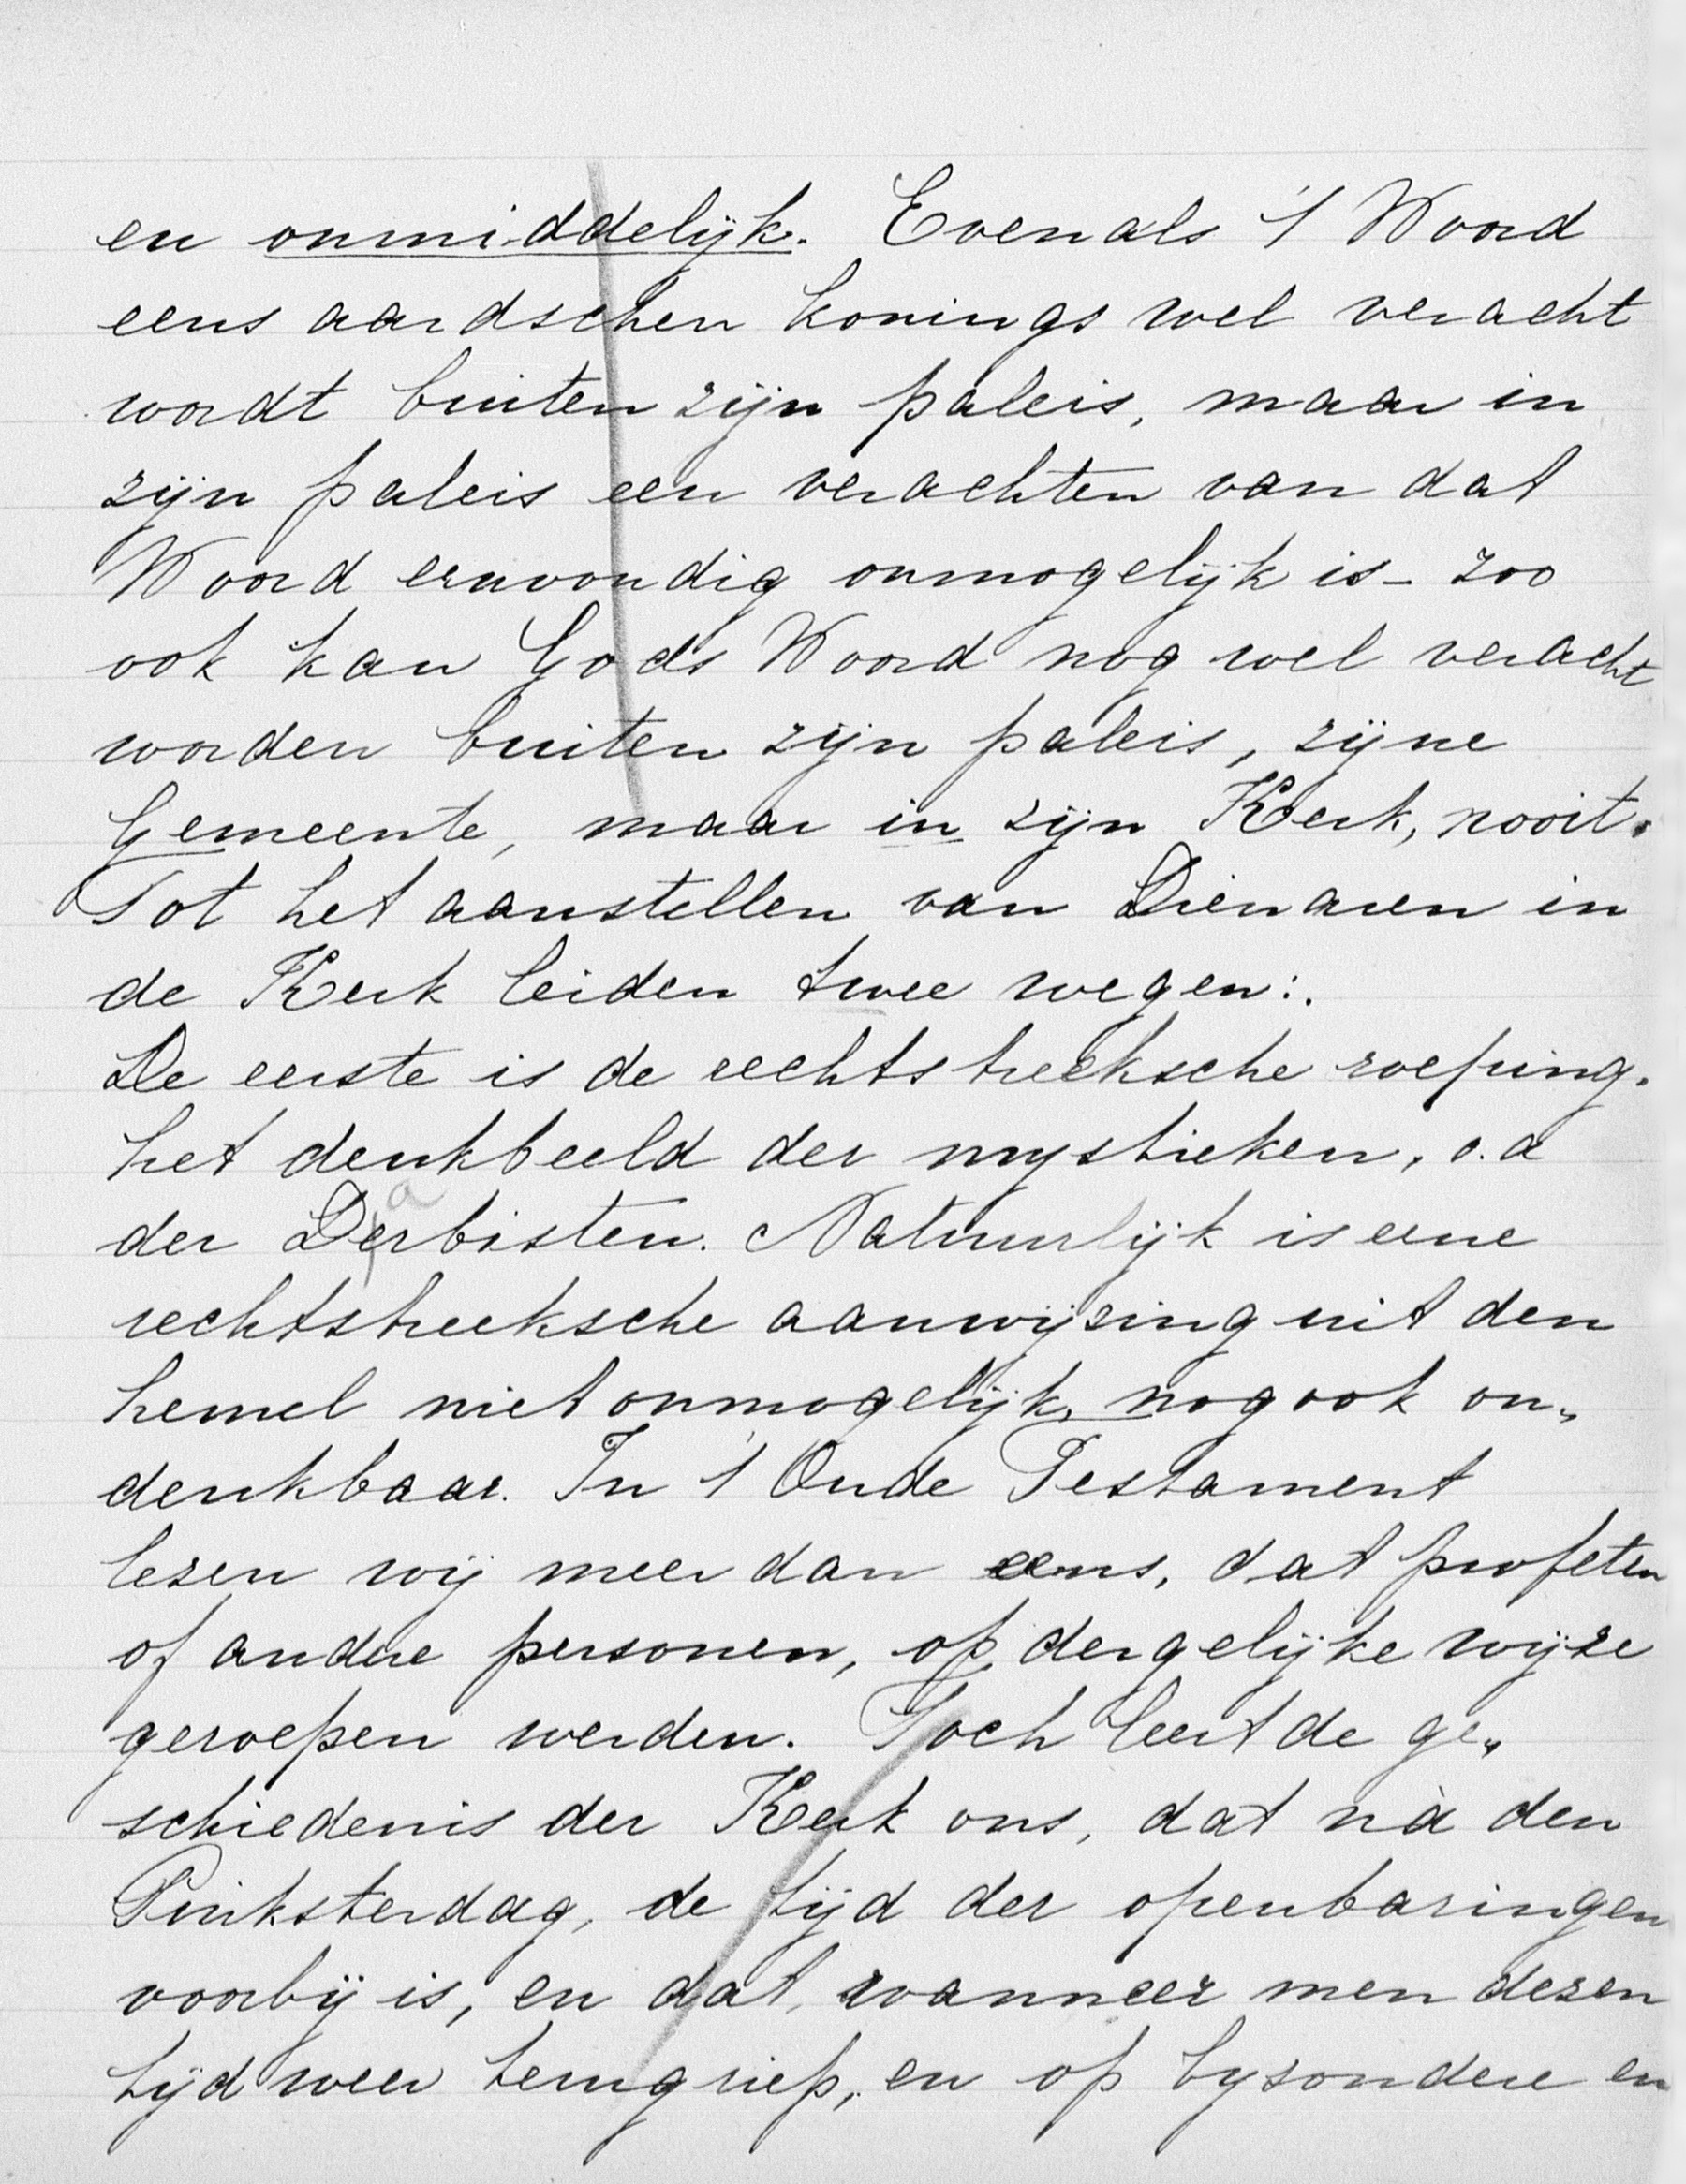 en onmiddelijk. Evenals 't Woord
eens aardschen konings wel veracht
wordt buiten zijn paleis, maar in
zijn paleis een verachten van dat
Woord eenvoudig onmogelijk is – zoo
ook kan Gods Woord nog wel veracht
worden buiten zijn paleis, zijne
Gemeente, maar in zijn Kerk, nooit.
Tot het aanstellen van Dienaren in
de Kerk leiden twee wegen:.
De eerste is de rechtstreeksche roeping.
het denkbeeld der mystieken, o.a
a
der Derbisten. Natuurlijk is eene
rechtstreeksche aanwijzing uit den
hemel niet onmogelijk, nog ook on„
denkbaar. In 't Oude Testament
lezen wij meer dan eens, dat profeten
of andere personen, op dergelijke wijze
geroepen werden. Toch leert de ge„
schiedenis der Kerk ons, dat nà den
Pinksterdag, de tijd der openbaringen
voorbij is, en dat, wanneer men dezen
tijd weer terugriep, en op byzondere en